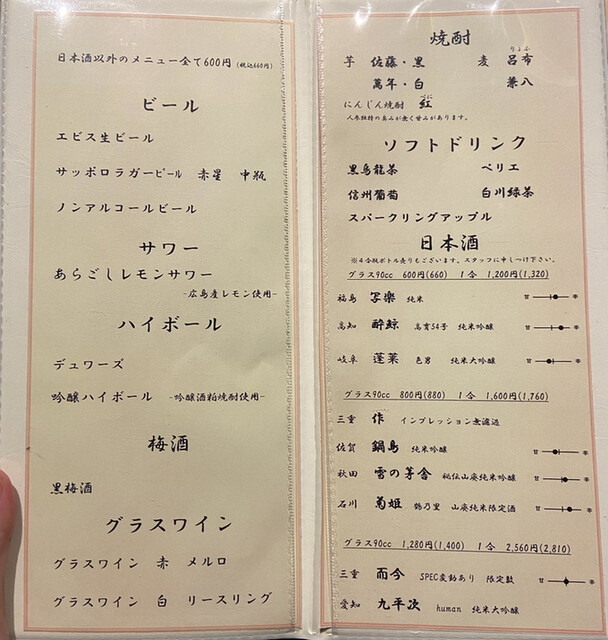 日本酒以外のメニュー全て600円(税込660円)
ビール
エビス生ビール
サッポロラガービール 赤星 中瓶
ノンアルコールビール
サワー
あらごしレモンサワー
-広島産レモン使用-
ハイボール
デュワーズ
吟醸ハイボール -吟醸酒粕焼酎使用-
梅酒
黒梅酒
グラスワイン
グラスワイン 赤 メルロ
グラスワイン 白 リースリング
焼酎
芋 佐藤・黒 麦 呂布
りょふ
萬年・白 兼八
にんじん焼酎 紅
べに
人参独特の臭みが無く甘みがあります。
ソフトドリンク
黒烏龍茶 ペリエ
信州葡萄 白川緑茶
スパークリングアップル
日本酒
※4合瓶ボトル売りもございます。スタッフに申しつけ下さい。
グラス90cc 600円(660) 1合 1,200円(1,320)
福島 写楽 純米 甘 辛
高知 酔鯨 高育54号 純米吟醸 甘 辛
岐阜 蓬莱 色男 純米大吟醸 甘 辛
グラス90cc 800円(880) 1合 1,600円(1,760)
三重 作 インプレッション無濾過
佐賀 鍋島 純米吟醸 甘 辛
秋田 雪の茅舎 秘伝山廃純米吟醸 甘 辛
石川 菊姫 鶴乃里 山廃純米限定酒 甘 辛
グラス90cc 1,280円(1,400) 1合 2,560円(2,810)
三重 而今 SPEC変動あり 限定数 甘 辛
愛知 九平次 human 純米大吟醸